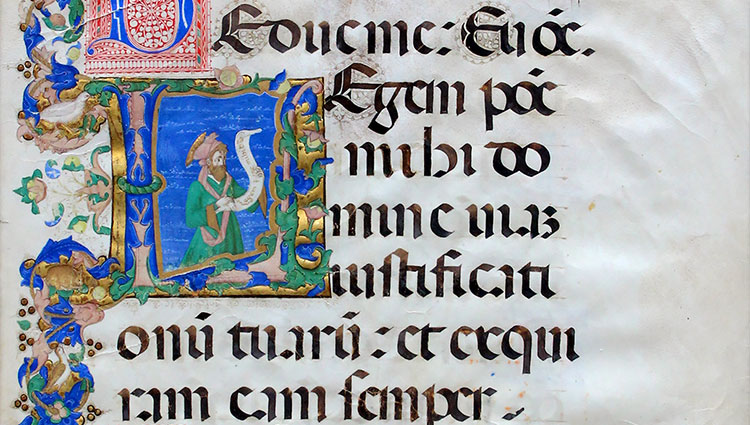 DEduc me: Euōe.
LEgem pōe
mihi do
mine uiaʒ
iustificati
onū tuarū : et exqui
ram eam semper.